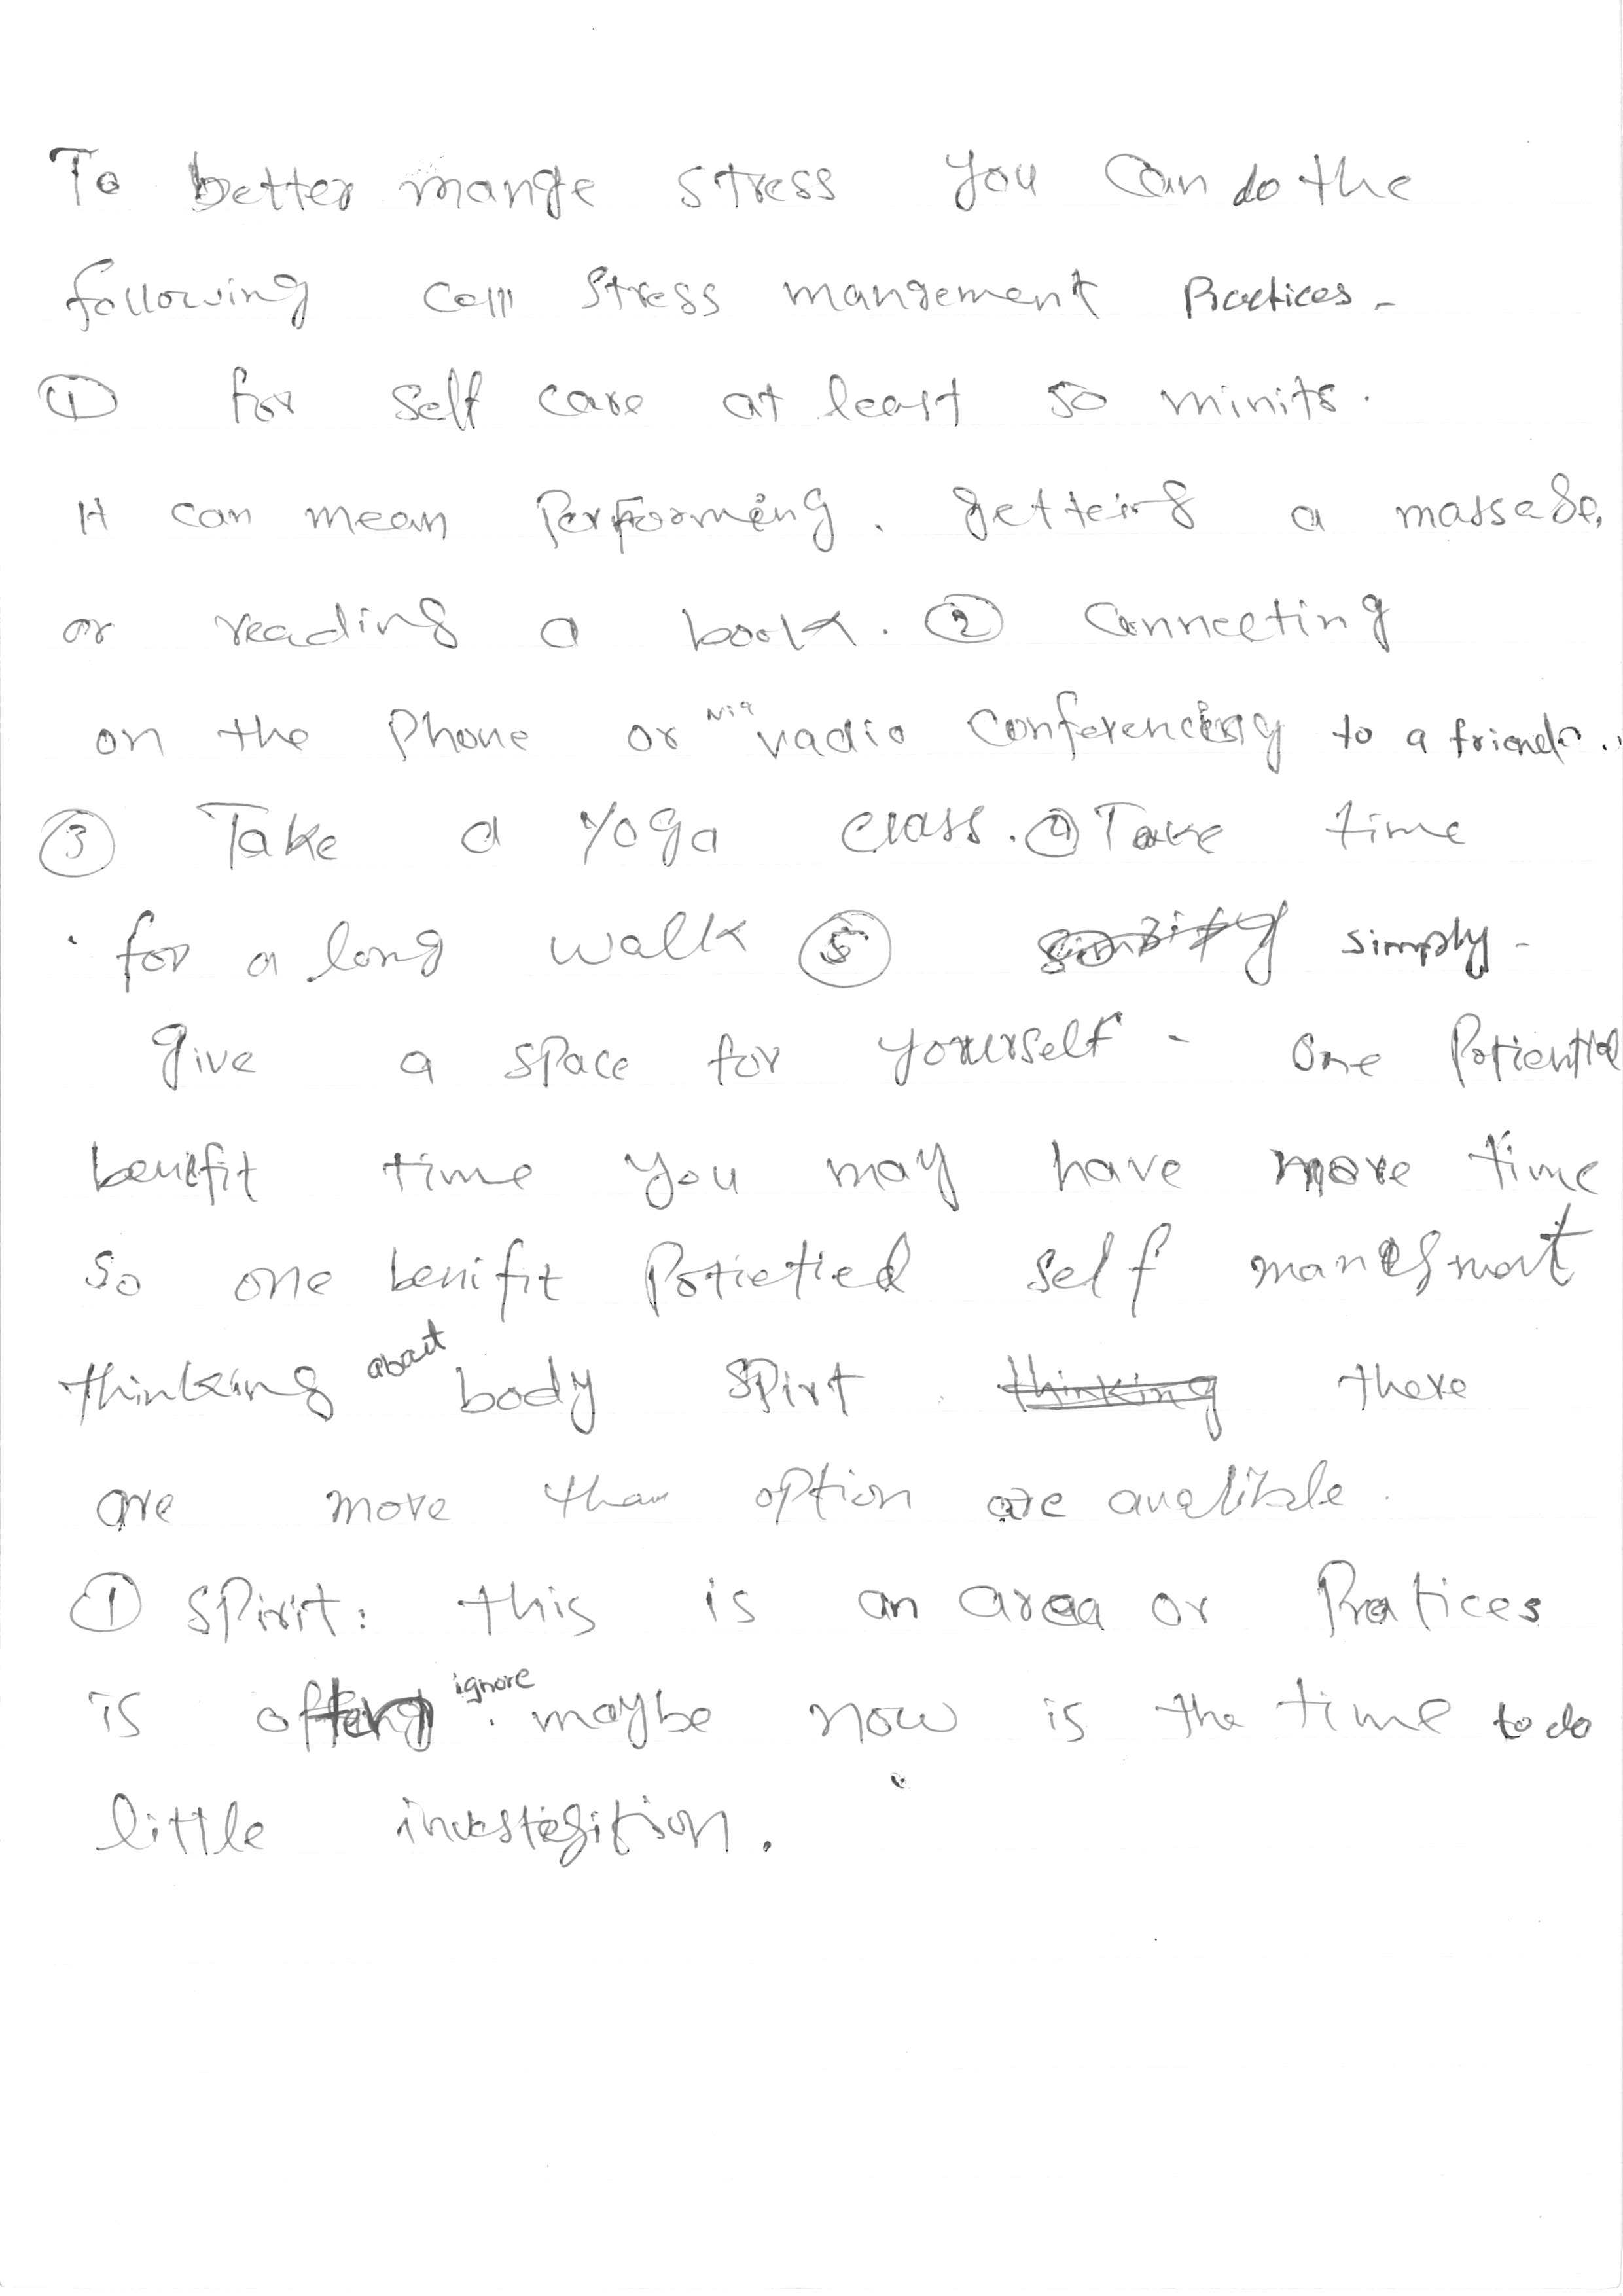 To better mange stress you can do the
following call stress mangement Practices -
① for self care at least 50 minits.
It can mean Performing. getteing a massage,
or reading a book. ② Connecting
on the Phone or via vadio Conferencing to a friend.
③ Take a yoga class. ④ Take time
for a long walk ⑤ simply -
give a space for yourself - One Potiential
benifit time you may have more time
so one benifit Potietied self
thinking about body spirt there
are more than option are
① Spirit: this is an area or Pratices
is often ignore. maybe now is the time to do
little investigition.